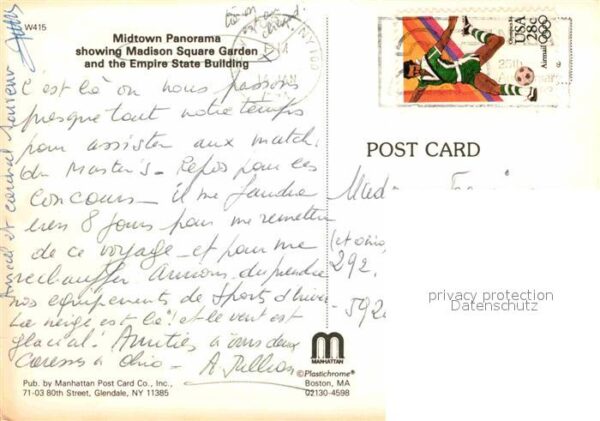 W415
Midtown Panorama
showing Madison Square Garden
and the Empire State Building
C'est là où nous passons
presque tout notre temps
pour assister aux match
du Master's - Repos pour ces
concours - il me faudra
8 jours pour me remettre
de ce voyage - et pour me
rechauffer. Aurions du prendre
nos equipements de Sports d'hiver
La neige est là! et le vent est
glacial! Amitiés à vous deux
Caresses à Ohio -
Amical et cordial souvenir
USA
28c
Airmail
POST CARD
(et Ohio)
292.
592
privacy protection
Datenschutz
MANHATTAN
©Plastichrome®
Boston, MA
02130-4598
Pub. by Manhattan Post Card Co., Inc.,
71-03 80th Street, Glendale, NY 11385